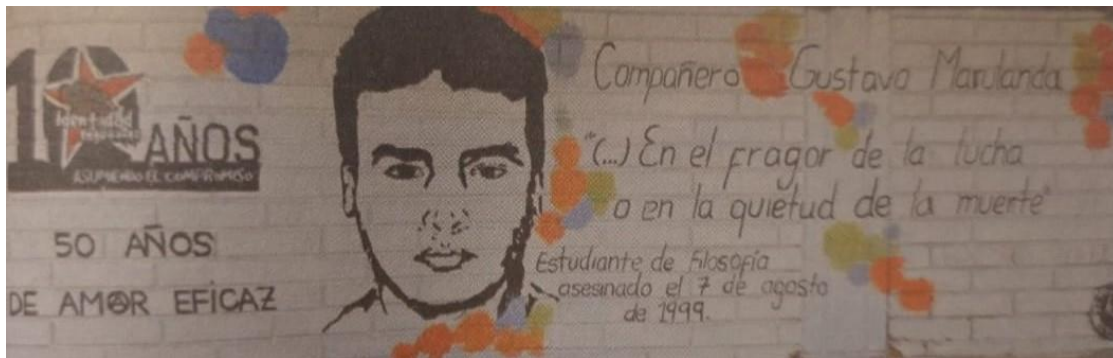 10 AÑOS
Identidad
ASUMIENDO EL COMPROMISO
50 AÑOS
DE AMOR EFICAZ
Compañero Gustavo Marulanda
"(...) En el fragor de la lucha
o en la quietud de la muerte"
Estudiante de Filosofía
asesinado el 7 de agosto
de 1999.